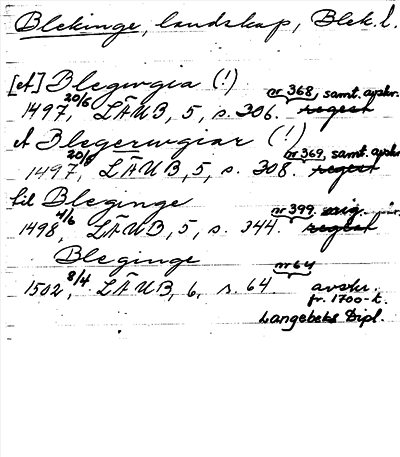 Blekinge, landskap, Blek. l.
[et] Blegwgia (!)
1497 20/5, LÄUB, 5, s. 306. nr 368, samt. avskr. regest
et Blegerwgiar (!)
1497 20/5, LÄUB, 5, s. 308. nr 369, samt. avskr. regest
til Bleginge
1498 4/6, LÄUB, 5, s. 344. nr 399. orig. regest
Bleginge
1502 8/4, LÄUB, 6, s. 64. nr 64 avskr.
fr. 1700-t.
Langebeks Dipl.